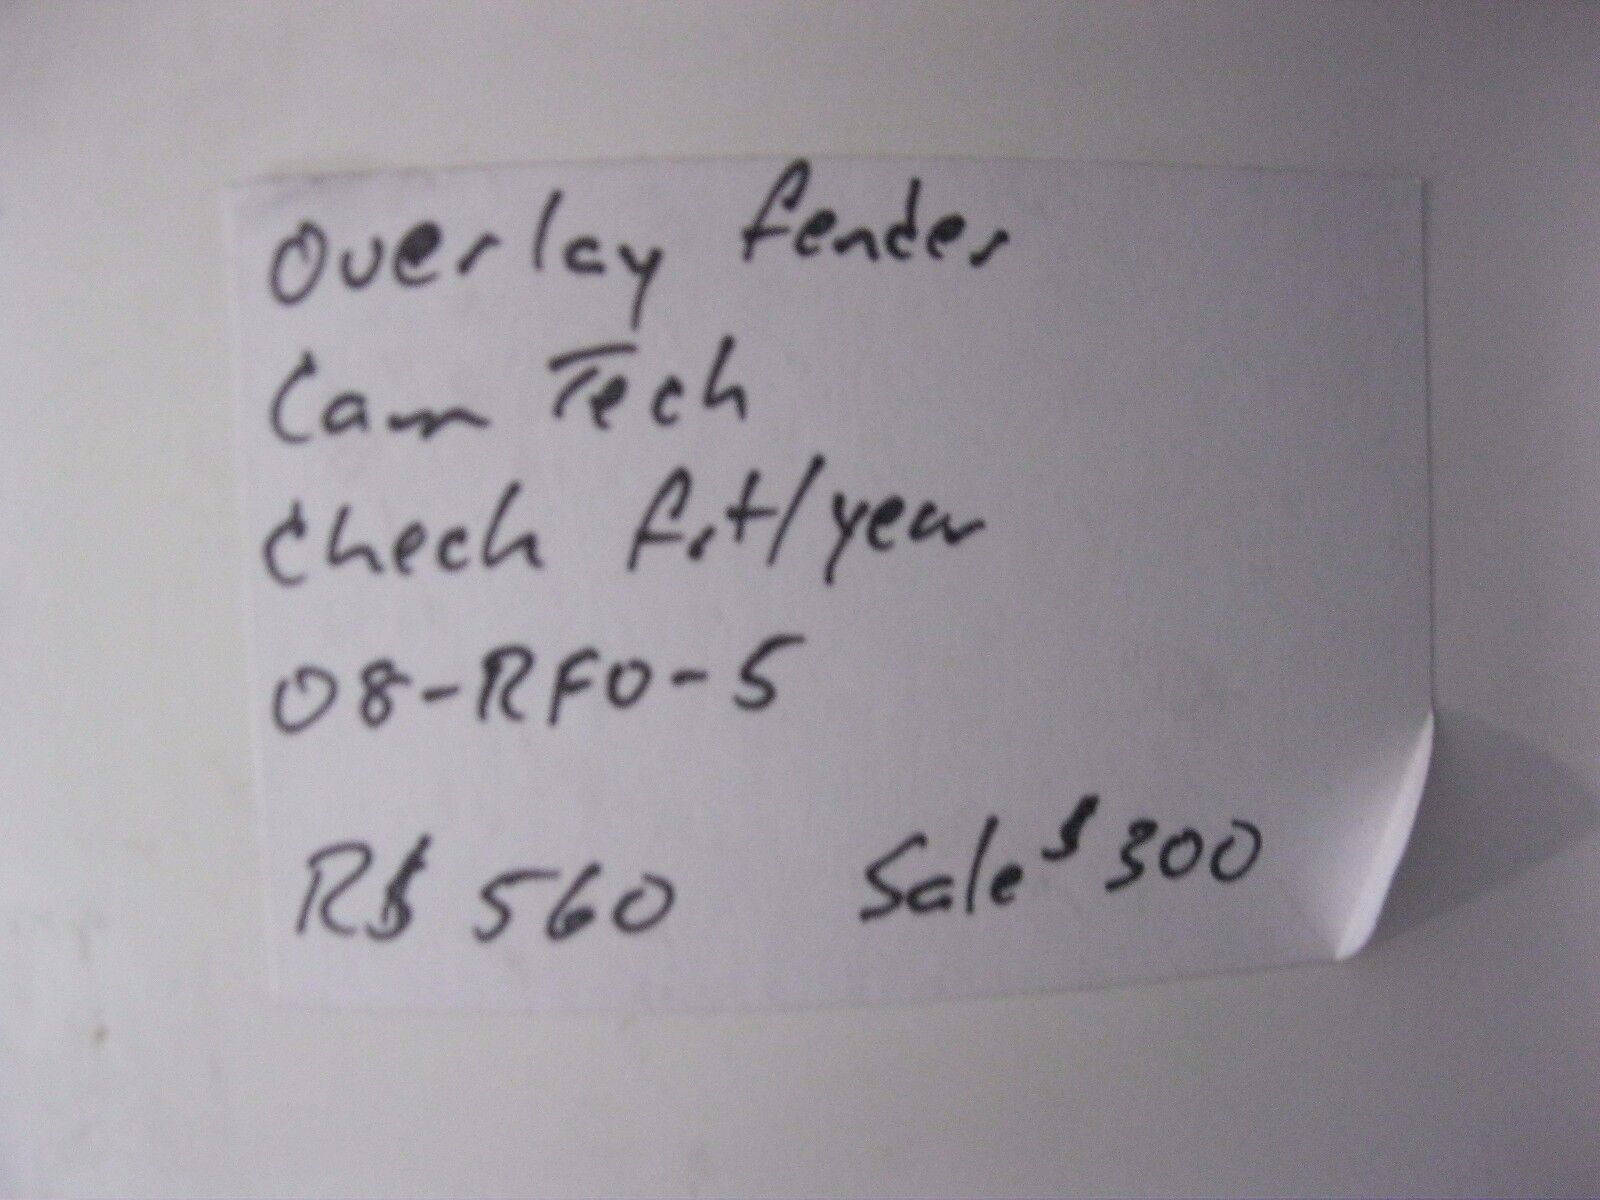 Overlay fender
Cam Tech
Check fit/year
08-RFO-5
R$ 560 Sale $300